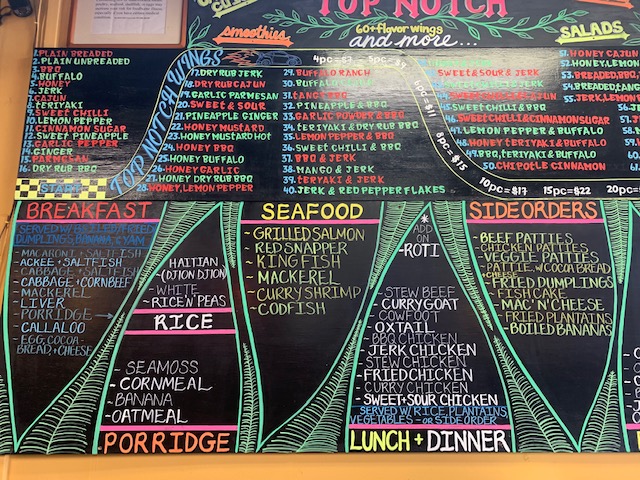 TOP NOTCH
60+flavor wings
and more...
smoothies
SALADS
TOP NOTCH WINGS
START
1.PLAIN BREADED
2.PLAIN UNBREADED
3.BBQ
4.BUFFALO
5.HONEY
6.JERK
7.CAJUN
8.TERIYAKI
9.SWEET CHILLI
10.LEMON PEPPER
11.CINNAMON SUGAR
12.SWEET PINEAPPLE
13.GARLIC PEPPER
14.GINGER
15.PARMESAN
16.DRY RUB BBQ
17.DRY RUB JERK
18.DRY RUB CAJUN
19.GARLIC PARMESAN
20.SWEET & SOUR
21.PINEAPPLE GINGER
22.HONEY MUSTARD
23.HONEY MUSTARD HOT
24.HONEY BBQ
25.HONEY BUFFALO
26.HONEY GARLIC
27.HONEY DRY RUB BBQ
28.HONEY, LEMON PEPPER
29.BUFFALO RANCH
30.BUFFALO
31.TANGY BBQ
32.PINEAPPLE & BBQ
33.GARLIC POWDER & BBQ
34.TERIYAKI & DRY RUB BBQ
35.LEMON PEPPER & BBQ
36.SWEET CHILLI & BBQ
37.BBQ & JERK
38.MANGO & JERK
39.TERIYAKI & JERK
40.JERK & RED PEPPER FLAKES
4pc=$7
5pc=$9
6pc=$11
8pc=$15
10pc=$17
15pc=$22
20pc=
SWEET & SOUR & JERK
45.SWEET CHILLI & BBQ
46.SWEET CHILLI & CINNAMON SUGAR
47.LEMON PEPPER & BUFFALO
48.HONEY TERIYAKI & BUFFALO
49.BBQ, TERIYAKI & BUFFALO
50.CHIPOTLE CINNAMON
51.HONEY CAJUN
52.HONEY, LEMON
53.BREADED, BBQ
54.BREADED, TANG
55.JERK, LEMON
BREAKFAST
SERVED W/BOILED/FRIED
DUMPLINGS, BANANA, & YAM
-MACARONI + SALTFISH
-ACKEE + SALTFISH
-CABBAGE + SALTFISH
-CABBAGE + CORNBEEF
-MACKEREL
-LIVER
-PORRIDGE →
-CALLALOO
-EGG, COCOA-
BREAD, + CHEESE
-HAITIAN
(DJON DJON)
-WHITE
-RICE 'N' PEAS
RICE
-SEAMOSS
-CORNMEAL
-BANANA
-OATMEAL
PORRIDGE
SEAFOOD
-GRILLED SALMON
-RED SNAPPER
-KING FISH
-MACKEREL
-CURRY SHRIMP
-CODFISH
*
ADD
ON
-ROTI
-STEW BEEF
-CURRY GOAT
-COWFOOT
-OXTAIL
-BBQ CHICKEN
-JERK CHICKEN
-STEW CHICKEN
-FRIED CHICKEN
-CURRY CHICKEN
-SWEET+SOUR CHICKEN
SERVED W/ RICE, PLANTAINS,
VEGETABLES -OR SIDE ORDER
LUNCH + DINNER
SIDEORDERS
-BEEF PATTIES
-CHICKEN PATTIES
-VEGGIE PATTIES
-PATTIE, W/COCOA BREAD
+CHEESE
-FRIED DUMPLINGS
-FISH CAKE
-MAC 'N' CHEESE
-FRIED PLANTAINS
-BOILED BANANAS